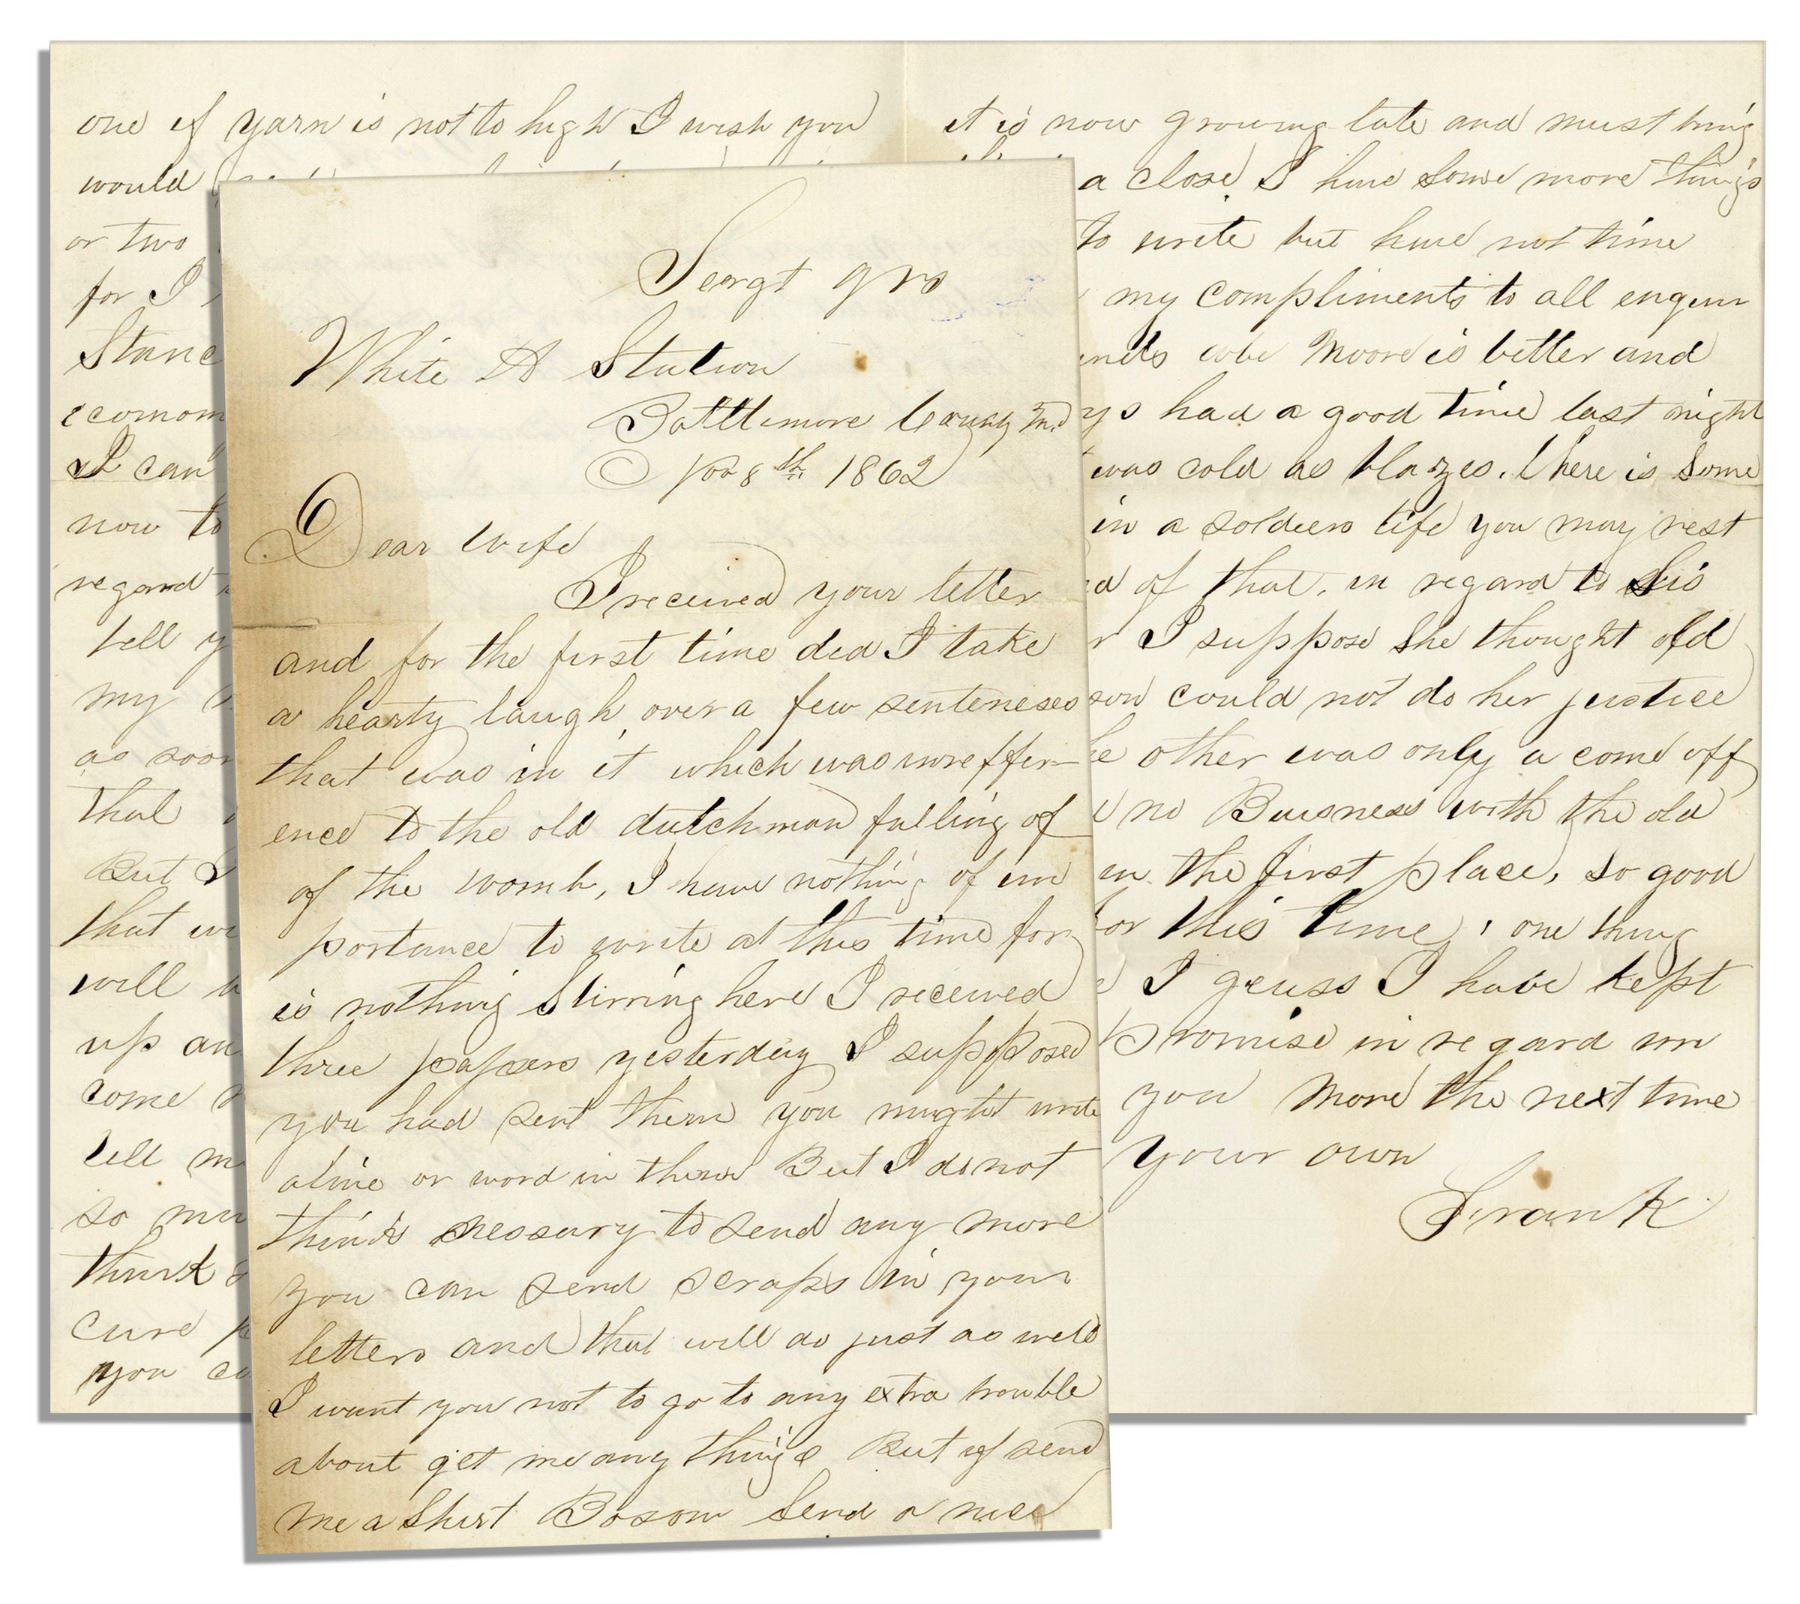 Seargt
White H Station
Batltimore County Md
Nov 8th 1862
Dear Wife
I received your letter
and for the first time did I take
a hearty laugh over a few senteneses
that was in it which was in reffer-
ence to the old dutchman falling of
of the womb, I have nothing of im
portance to write at this time for
is nothing Stirring here I received
three papers yesterday I supposed
you had sent them you might write
a line or word in them But I do not
think nessary to send any more
you can send scraps in your
letters and that will do just as well
I want you not to go to any extra trouble
about get me any things But if send
me a Shirt Bosom Send a nice
one if yarn is not to high I wish you
would
or two
for I
Stanc
ecornom
I can
now to
regard
tell y
my
as soon
that
But I
that
will
up an
come
tell m
so mu
think
cure
you
it is now growing late and must bring
a close I have some more things
to write but have not time
my compliments to all enquir
Moore is better and
ys had a good time last night
was cold as blazes. There is some
in a soldiers life you may rest
ed of that. in regard to
r I suppose She thought old
son could not do her justice
he other was only a come off
no Buisness with the old
in the first place, so good
for this time, one thing
I geuss I have kept
promise in regard
you More the next time
your own
Frank